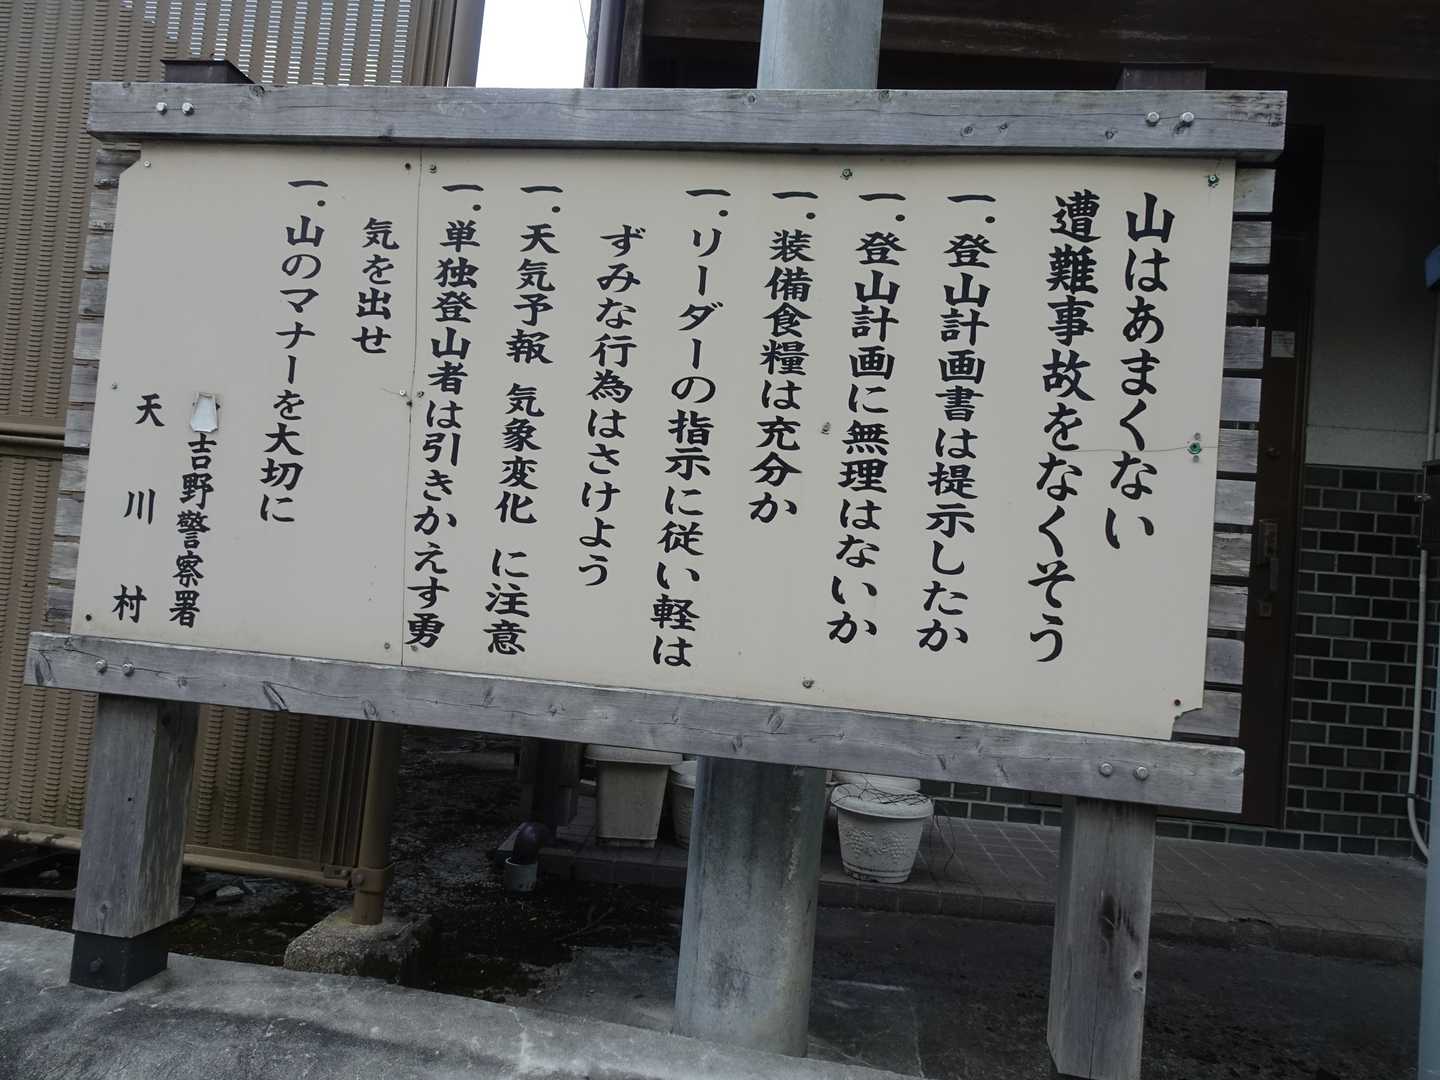 山はあまくない
遭難事故をなくそう
一.登山計画書は提示したか
一.登山計画に無理はないか
一.装備食糧は充分か
一.リーダーの指示に従い軽は
ずみな行為はさけよう
一.天気予報 気象変化 に注意
一.単独登山者は引きかえす勇
気を出せ
一.山のマナーを大切に
吉野警察署
天川村